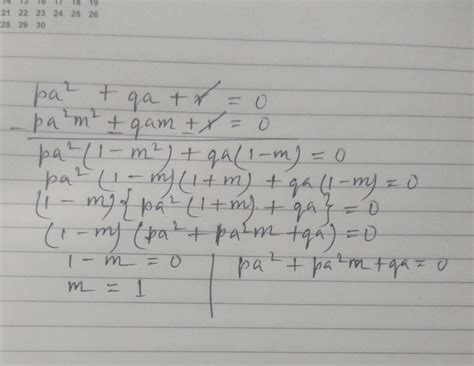 14 15 16 17 18 19
21 22 23 24 25 26
28 29 30
pa² + qa + r = 0
- pa²m² ± qam ± r = 0
pa²(1-m²) + qa(1-m) = 0
pa²(1-m)(1+m) + qa(1-m) = 0
(1-m){pa²(1+m) + qa} = 0
(1-m)(pa² + pa²m + qa) = 0
1-m = 0 | pa² + pa²m + qa = 0
m = 1